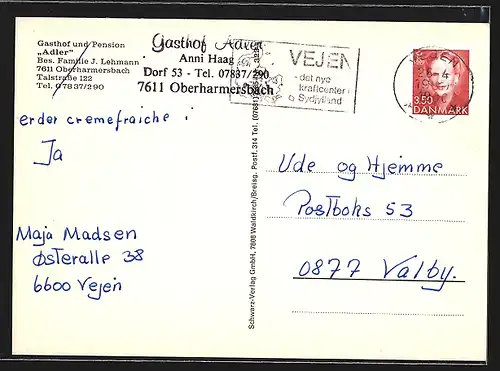 Gasthof und Pension
„Adler"
Bes. Familie J. Lehmann
7611 Oberharmersbach
Talstraße 122
Tel. 07837/290
Gasthof Adler
Anni Haag
Dorf 53 - Tel. 07837/290
7611 Oberharmersbach
VEJEN
- det nye
kraftcenter i
Sydjylland
VEJEN
3.50
DANMARK
erder cremefraiche i
Ja
Maja Madsen
Østeralle 38
6600 Vejen
Schwarz-Verlag GmbH, 7808 Waldkirch/Breisg. Postf. 314 Tel. (07681)
Ude og Hjemme
Postboks 53
0877 Valby.